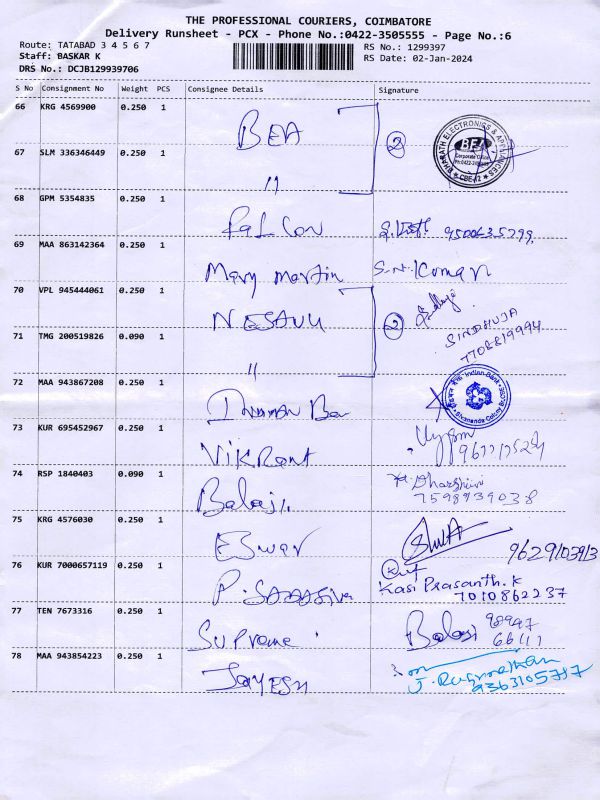 THE PROFESSIONAL COURIERS, COIMBATORE
Delivery Runsheet - PCX - Phone No.:0422-3505555 - Page No.:6
Route: TATABAD 3 4 5 6 7
RS No.: 1299397
Staff: BASKAR K
RS Date: 02-Jan-2024
DRS No.: DCJB129939706
S No Consignment No Weight PCS Consignee Details Signature
66 KRG 4569900 0.250 1 BEA 2
BHARATH ELECTRONICS & APPLIANCES
BEA
Corporate Office
67 SLM 336346449 0.250 1 "
68 GPM 5354835 0.250 1 Falcon 9500635299
69 MAA 863142364 0.250 1 Mary Martin S.N.Kumar
70 VPL 945444061 0.250 1 NESAVU 2
SINDHUJA
7708819994
71 TMG 200519826 0.090 1 "
72 MAA 943867208 0.250 1 Indian Ban
Indian Bank
73 KUR 695452967 0.250 1 VIKRant
74 RSP 1840403 0.090 1 Balaji Dharshini
7598939038
75 KRG 4576030 0.250 1 ESwar 9629103913
76 KUR 7000657119 0.250 1 P. SADASIva Kasi Prasanth.K
7010862237
77 TEN 7673316 0.250 1 Supreme Balaji 98947
66111
78 MAA 943854223 0.250 1 JAYESH
9363105787